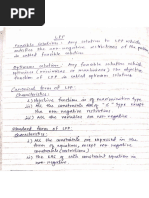 LPP
Feasible solution: Any solution to LPP which
satisfies the non-negative restrictions of the problem
is called feasible solution.
Optimum solution: Any feasible solution which
optimizes (minimizes or maximizes) the objective
function of LPP is called optimum solution
Canonical form of LPP:
Characteristics:
i) Objective function is of maximization type
ii) All the constraints are of "≤" type except
the non-negative
iii) All the variables are non-negative
Standard form of LPP:
characteristics:
i) All the constraints are expressed in the
form of equations, except non-negative
constraints (restrictions)
ii) The RHS of each constraint equation is
non-negative.